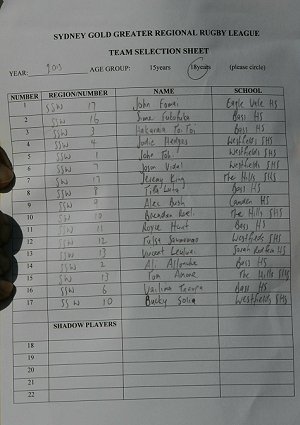 SYDNEY GOLD GREATER REGIONAL RUGBY LEAGUE
TEAM SELECTION SHEET
YEAR: 2013 AGE GROUP: 15years 18years (please circle)
NUMBER REGION/NUMBER NAME SCHOOL
1 SSW 17 John Eagle Vale HS
2 SSW 16 Bass HS
3 SSW 3 Toi Toi Bass HS
4 SSW 4 Jodie Hedges Westfields SHS
5 SSW 1 John Westfields SHS
6 SSW 7 Jason Vidal Westfields SHS
7 SSW 17 Jeremy King The Hills SHS
8 SSW 8 Bass HS
9 SSW 9 Alec Bush Camden HS
10 SSW 10 Brendan The Hills SHS
11 SSW 11 Royce Hunt Bass HS
12 SSW 12 Westfields SHS
13 SSW 13 Vincent Sarah Redfern HS
14 SSW 2 Ali Bass HS
15 SSW 13 Tom Amone The Hills SHS
16 SSW 6 Bass HS
17 SSW 10 Bucky Westfields SHS
SHADOW PLAYERS
18
19
20
21
22